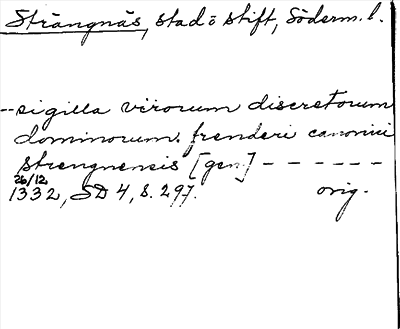 Strängnäs, stad o stift, Söderm. l.
-- sigilla virorum discretorum
dominorum. frenderi canonici
strengnensis [gen.] - - - - - -
26/12
1332, SD 4, s. 297. orig.